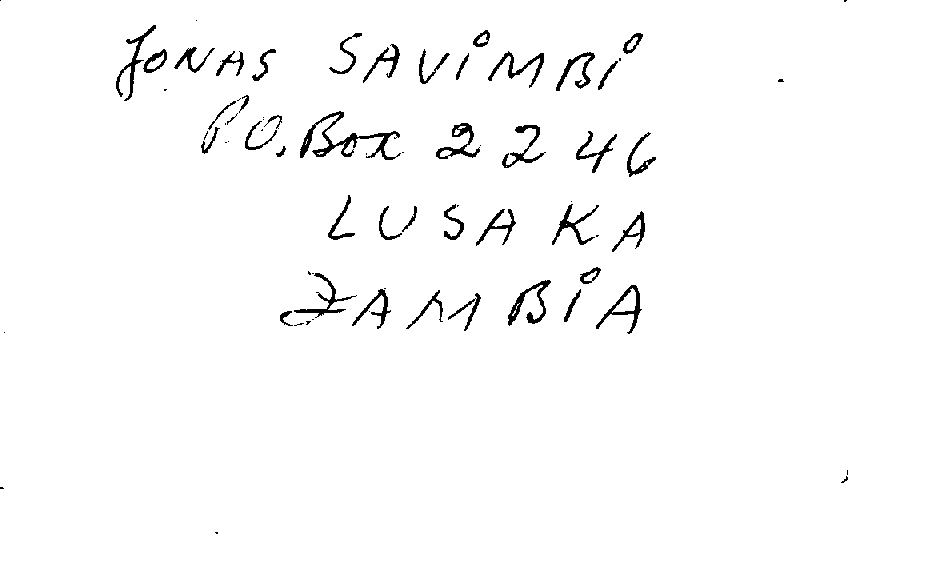 JONAS SAVIMBI
P.O. Box 2246
LUSAKA
ZAMBIA